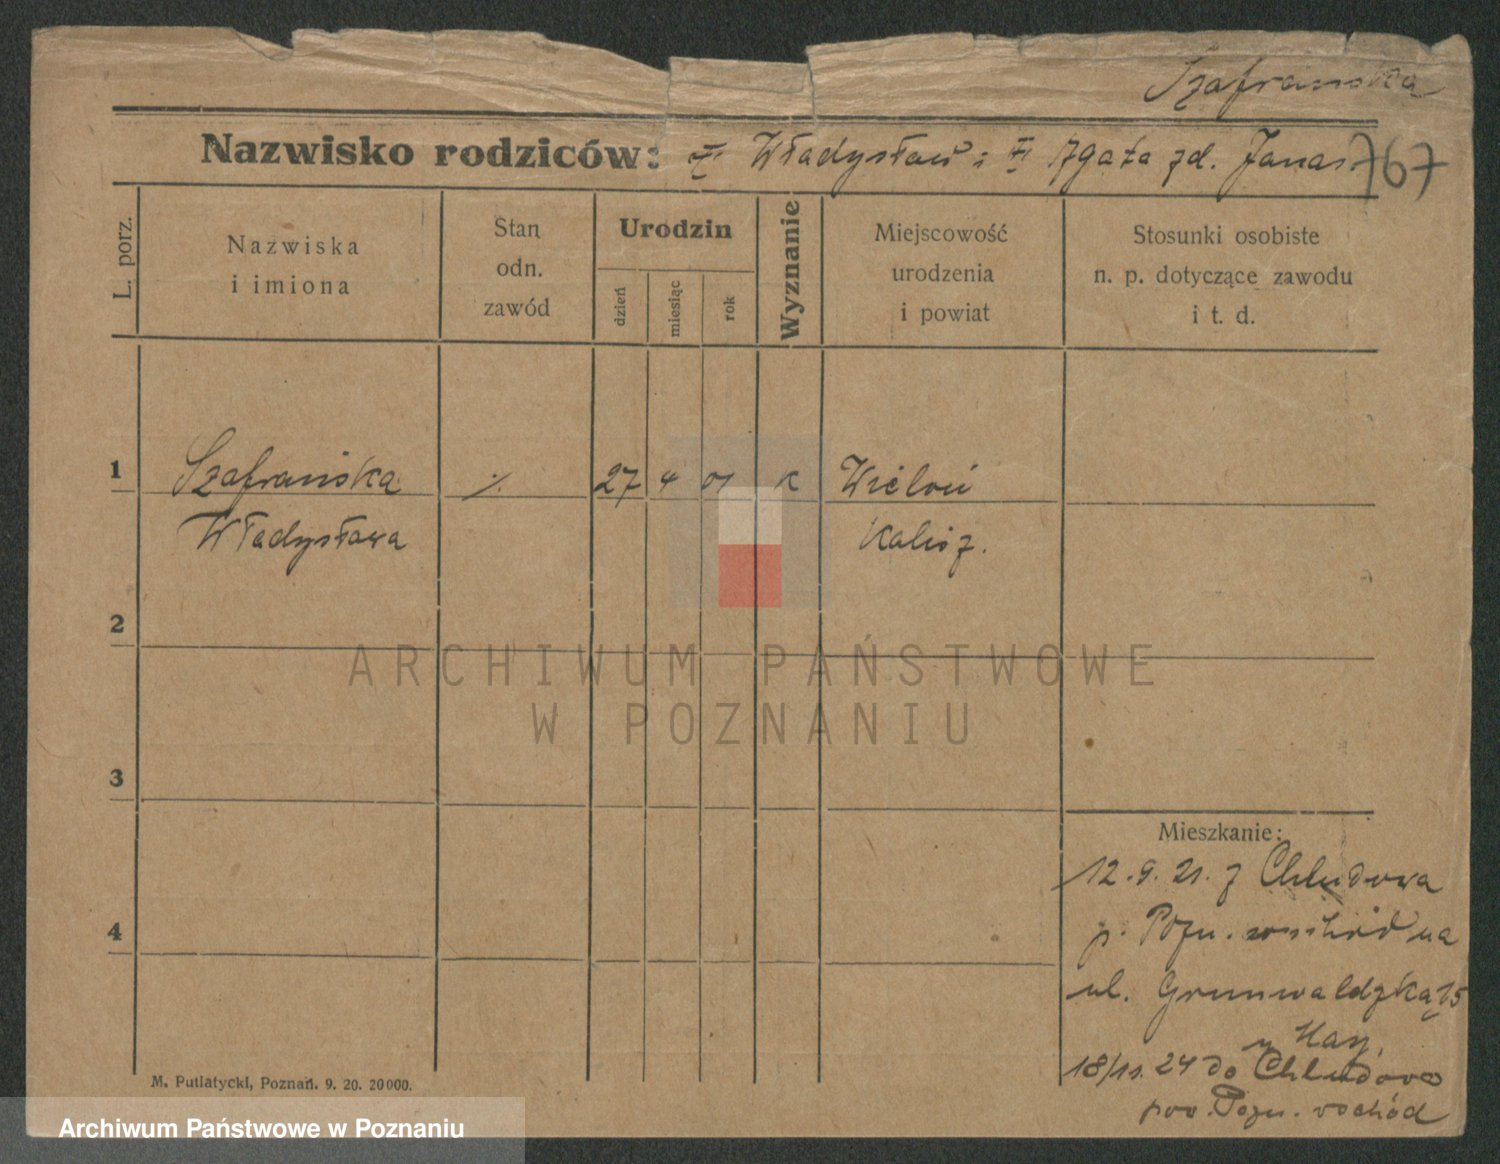 Szafrańska
Nazwisko rodziców: Władysław i Agata zd. Janas 767
L. porz.
Nazwiska
i imiona
Stan
odn.
zawód
Urodzin
dzień
miesiąc
rok
Wyznanie
Miejscowość
urodzenia
i powiat
Stosunki osobiste
n. p. dotyczące zawodu
i t. d.
1 Szafrańska 27 4 01 K Wieluń
Władysława Kalisz.
2
ARCHIWUM PAŃSTWOWE
W POZNANIU
3
Mieszkanie:
12.9.21. z Chludowa
p. Pozn. wschód na
4
ul. Grunwaldzką 15
u
18/11.24 do Chludowo
pow. Pozn. wschód
M. Putiatycki, Poznań. 9. 20. 20000.
Archiwum Państwowe w Poznaniu